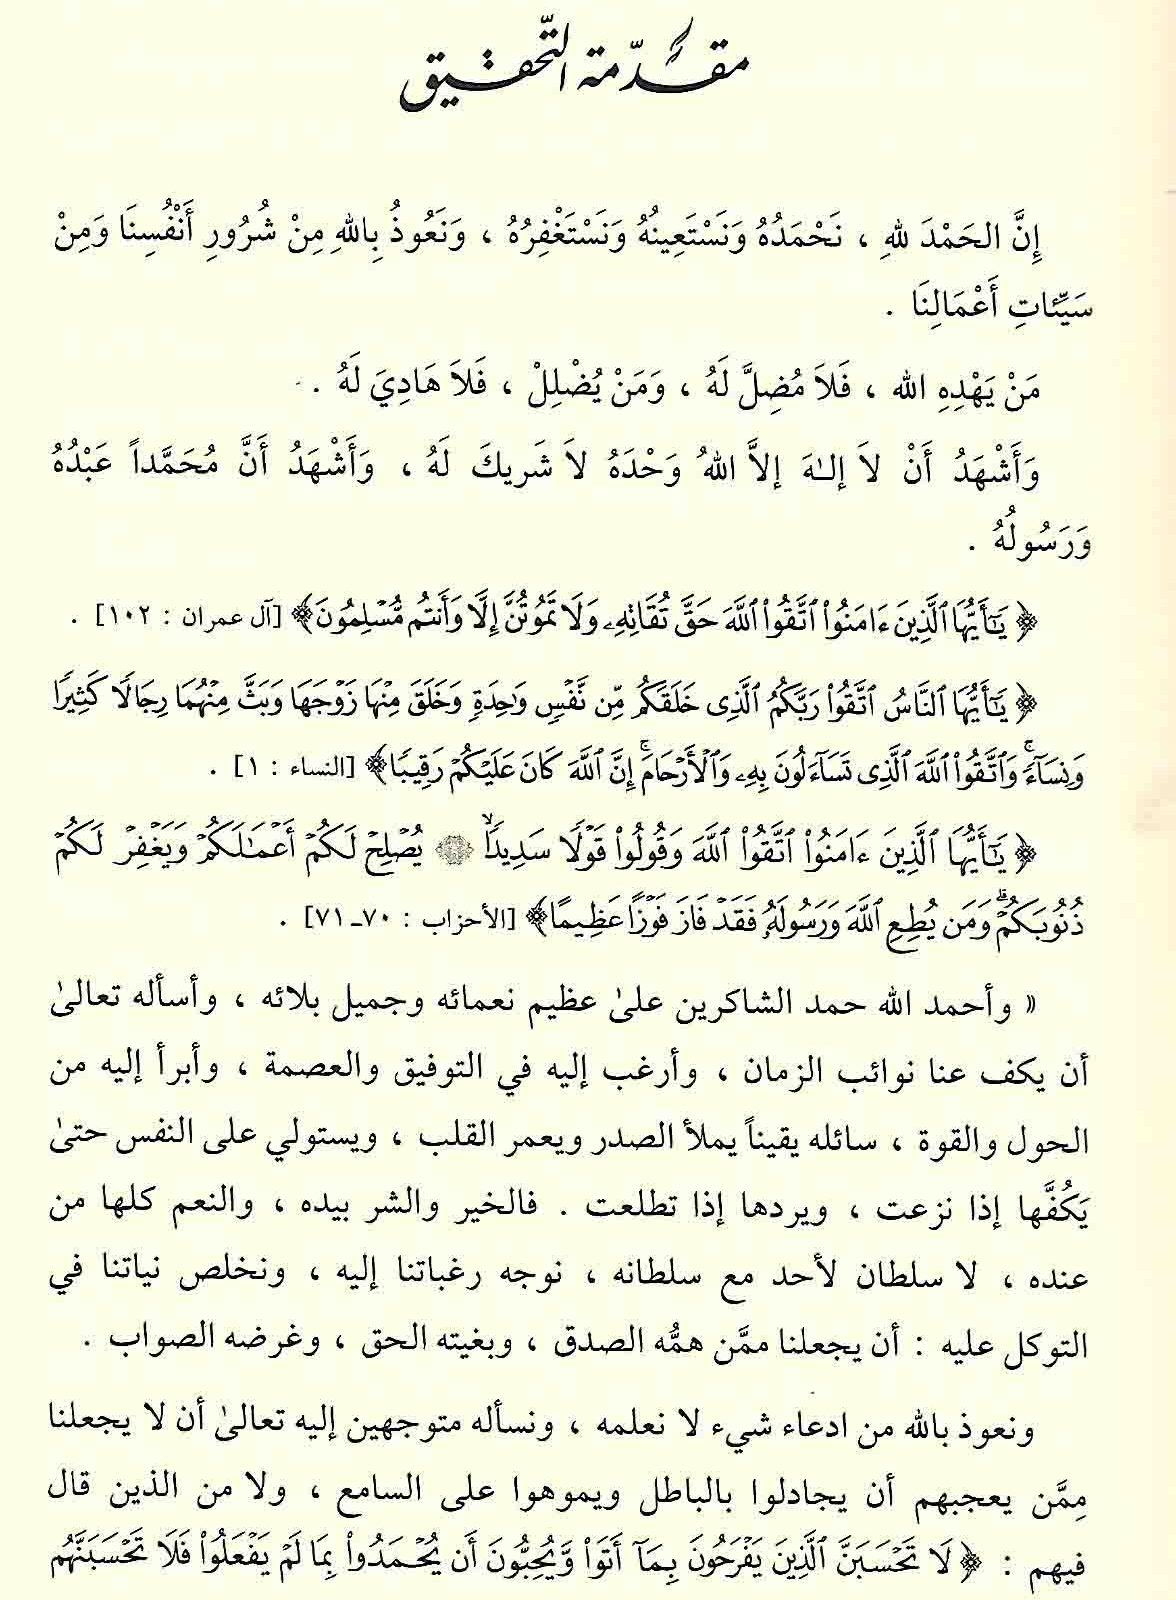 مقدّمة التّحقيق
إِنَّ الحَمْدَ للهِ ، نَحْمَدُهُ وَنَسْتَعِينُهُ وَنَسْتَغْفِرُهُ ، وَنَعُوذُ بِاللهِ مِنْ شُرُورِ أَنْفُسِنَا وَمِنْ
سَيِّئَاتِ أَعْمَالِنَا .
مَنْ يَهْدِهِ الله ، فَلاَ مُضِلَّ لَهُ ، وَمَنْ يُضْلِلْ ، فَلاَ هَادِيَ لَهُ .
وَأَشْهَدُ أَنْ لاَ إلـٰهَ إلاَّ اللهُ وَحْدَهُ لاَ شَريكَ لَهُ ، وَأَشْهَدُ أَنَّ مُحَمَّداً عَبْدُهُ
وَرَسُولُهُ .
﴿ يَٰٓأَيُّهَا ٱلَّذِينَ ءَامَنُوا۟ ٱتَّقُوا۟ ٱللَّهَ حَقَّ تُقَاتِهِۦ وَلَا تَمُوتُنَّ إِلَّا وَأَنتُم مُّسْلِمُونَ ﴾ [آل عمران : ١٠٢] .
﴿ يَٰٓأَيُّهَا ٱلنَّاسُ ٱتَّقُوا۟ رَبَّكُمُ ٱلَّذِى خَلَقَكُم مِّن نَّفْسٍ وَٰحِدَةٍ وَخَلَقَ مِنْهَا زَوْجَهَا وَبَثَّ مِنْهُمَا رِجَالًا كَثِيرًا
وَنِسَآءً ۚ وَٱتَّقُوا۟ ٱللَّهَ ٱلَّذِى تَسَآءَلُونَ بِهِۦ وَٱلْأَرْحَامَ ۚ إِنَّ ٱللَّهَ كَانَ عَلَيْكُمْ رَقِيبًا ﴾ [النساء : ١] .
﴿ يَٰٓأَيُّهَا ٱلَّذِينَ ءَامَنُوا۟ ٱتَّقُوا۟ ٱللَّهَ وَقُولُوا۟ قَوْلًا سَدِيدًا ۙ يُصْلِحْ لَكُمْ أَعْمَٰلَكُمْ وَيَغْفِرْ لَكُمْ
ذُنُوبَكُمْ ۗ وَمَن يُطِعِ ٱللَّهَ وَرَسُولَهُۥ فَقَدْ فَازَ فَوْزًا عَظِيمًا ﴾ [الأحزاب : ٧٠ـ٧١] .
« وأحمد الله حمد الشاكرين علىٰ عظيم نعمائه وجميل بلائه ، وأسأله تعالىٰ
أن يكف عنا نوائب الزمان ، وأرغب إليه في التوفيق والعصمة ، وأبرأ إليه من
الحول والقوة ، سائله يقيناً يملأ الصدر ويعمر القلب ، ويستولي على النفس حتىٰ
يَكُفَّها إذا نزعت ، ويردها إذا تطلعت . فالخير والشر بيده ، والنعم كلها من
عنده ، لا سلطان لأحد مع سلطانه ، نوجه رغباتنا إليه ، ونخلص نياتنا في
التوكل عليه : أن يجعلنا ممَّن همُّه الصدق ، وبغيته الحق ، وغرضه الصواب .
ونعوذ بالله من ادعاء شيء لا نعلمه ، ونسأله متوجهين إليه تعالىٰ أن لا يجعلنا
مِمَّن يعجبهم أن يجادلوا بالباطل ويموهوا على السامع ، ولا من الذين قال
فيهم : ﴿ لَا تَحْسَبَنَّ ٱلَّذِينَ يَفْرَحُونَ بِمَآ أَتَوا۟ وَّيُحِبُّونَ أَن يُحْمَدُوا۟ بِمَا لَمْ يَفْعَلُوا۟ فَلَا تَحْسَبَنَّهُم